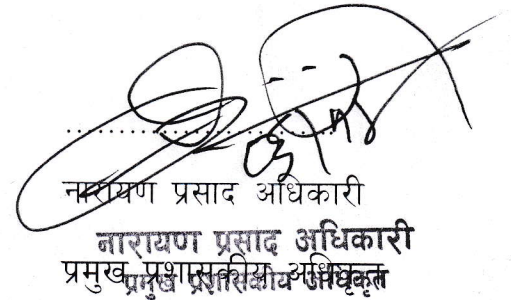 नारायण प्रसाद अधिकारी
नारायण प्रसाद अधिकारी
प्रमुख प्रशासकीय अधिकृत
प्रमुख प्रशासकीय अधिकृत